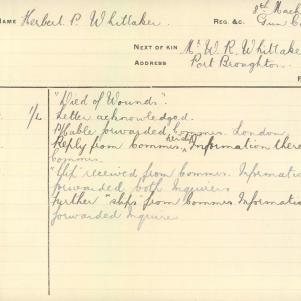 NAME Herbert P. Whittaker. REG. &C. 8th Mach
Gun Co
NEXT OF KIN Mr W. R. Whittake
ADDRESS Port Broughton.
"Died of Wounds".
Letter acknowledged.
Cable forwarded Commrs. London
Reply from Commrs. Information there
Commrs.
"Slip" received from Commrs. Informatio
forwarded both Inquirers
Further "slips" from Commrs. Informatio
forwarded Inquirer